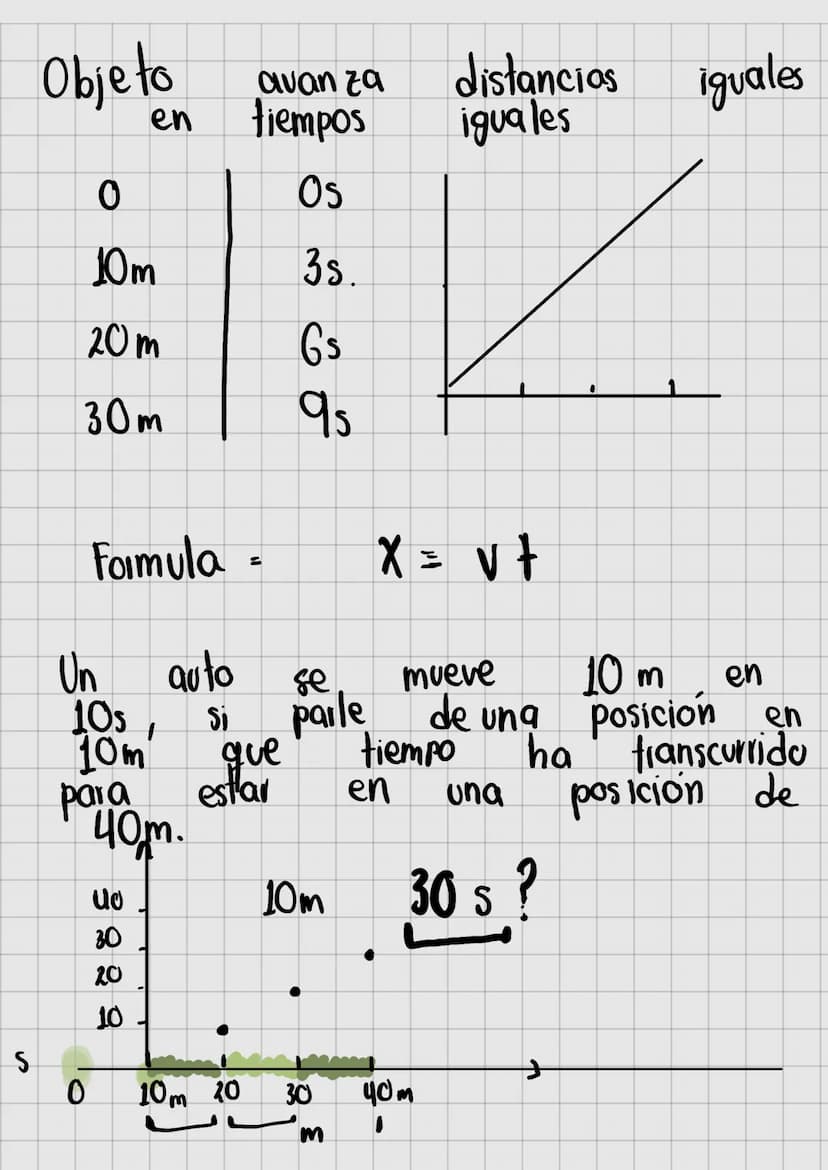 Objeto avanza distancias iguales
en tiempos iguales
0 0s
10m 3s.
20m 6s
30m 9s
Formula = x = vt
Un auto se mueve 10 m en
10s, si parte de una posición en
10m que tiempo ha transcurrido
para estar en una posición de
40m.
40 10m 30 s ?
30
20
10
s
0 10m 20 30 40m
m